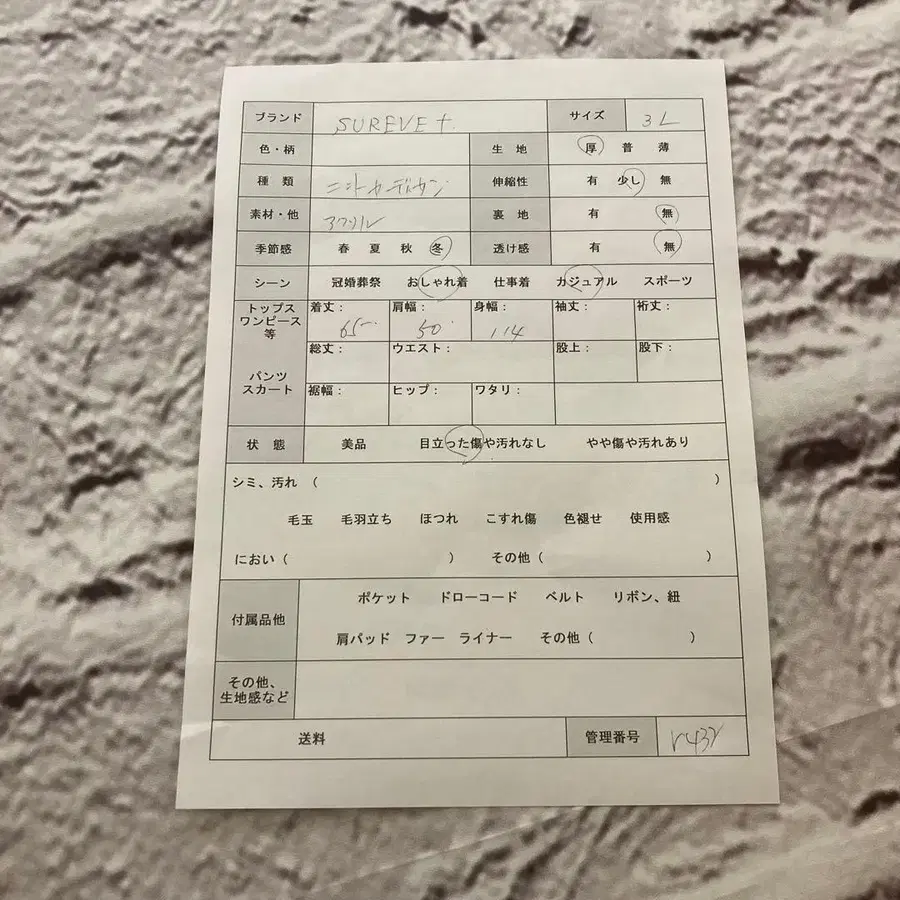 ブランド SUREVE+. サイズ 3L
色・柄 生地 厚 普 薄
種類 ニットカーディガン 伸縮性 有 少し 無
素材・他 アクリル 裏地 有 無
季節感 春 夏 秋 冬 透け感 有 無
シーン 冠婚葬祭 おしゃれ着 仕事着 カジュアル スポーツ
トップス ワンピース 等 着丈： 65 肩幅： 50 身幅： 114 袖丈： 裄丈：
パンツ スカート 総丈： ウエスト： 股上： 股下：
裾幅： ヒップ： ワタリ：
状態 美品 目立った傷や汚れなし やや傷や汚れあり
シミ、汚れ （ ）
毛玉 毛羽立ち ほつれ こすれ傷 色褪せ 使用感
におい（ ） その他（ ）
付属品他 ポケット ドローコード ベルト リボン、紐
肩パッド ファー ライナー その他（ ）
その他、
生地感など
送料 管理番号